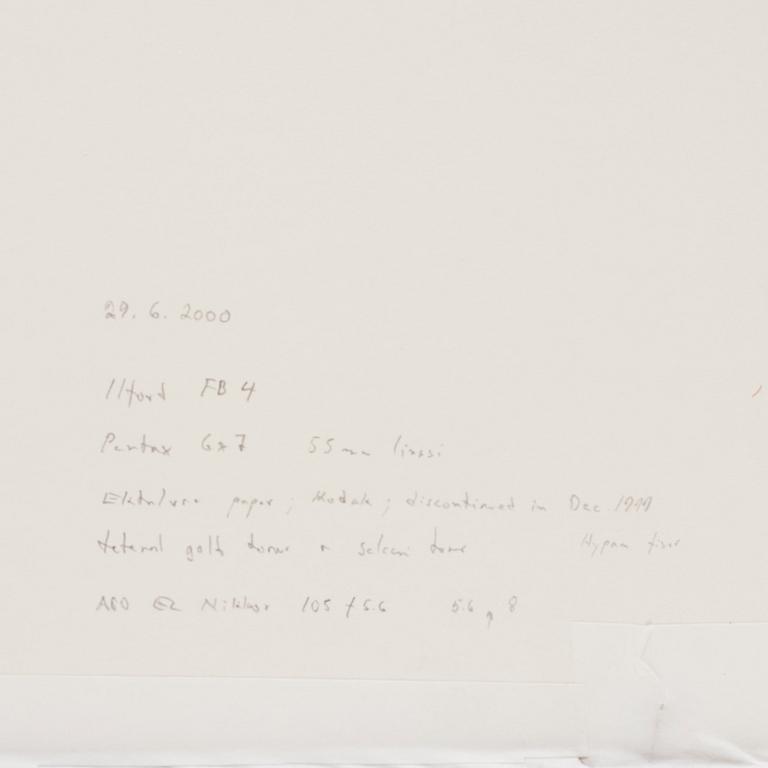 29. 6. 2000
Ilford FB 4
Pentax 6x7 55mm linssi
Ektalure paper; Kodak; discontinued in Dec. 1999
tetenal gold toner + selen toner Hypam fixer
APO EL Nikkor 105 f 5.6 5.6, 8